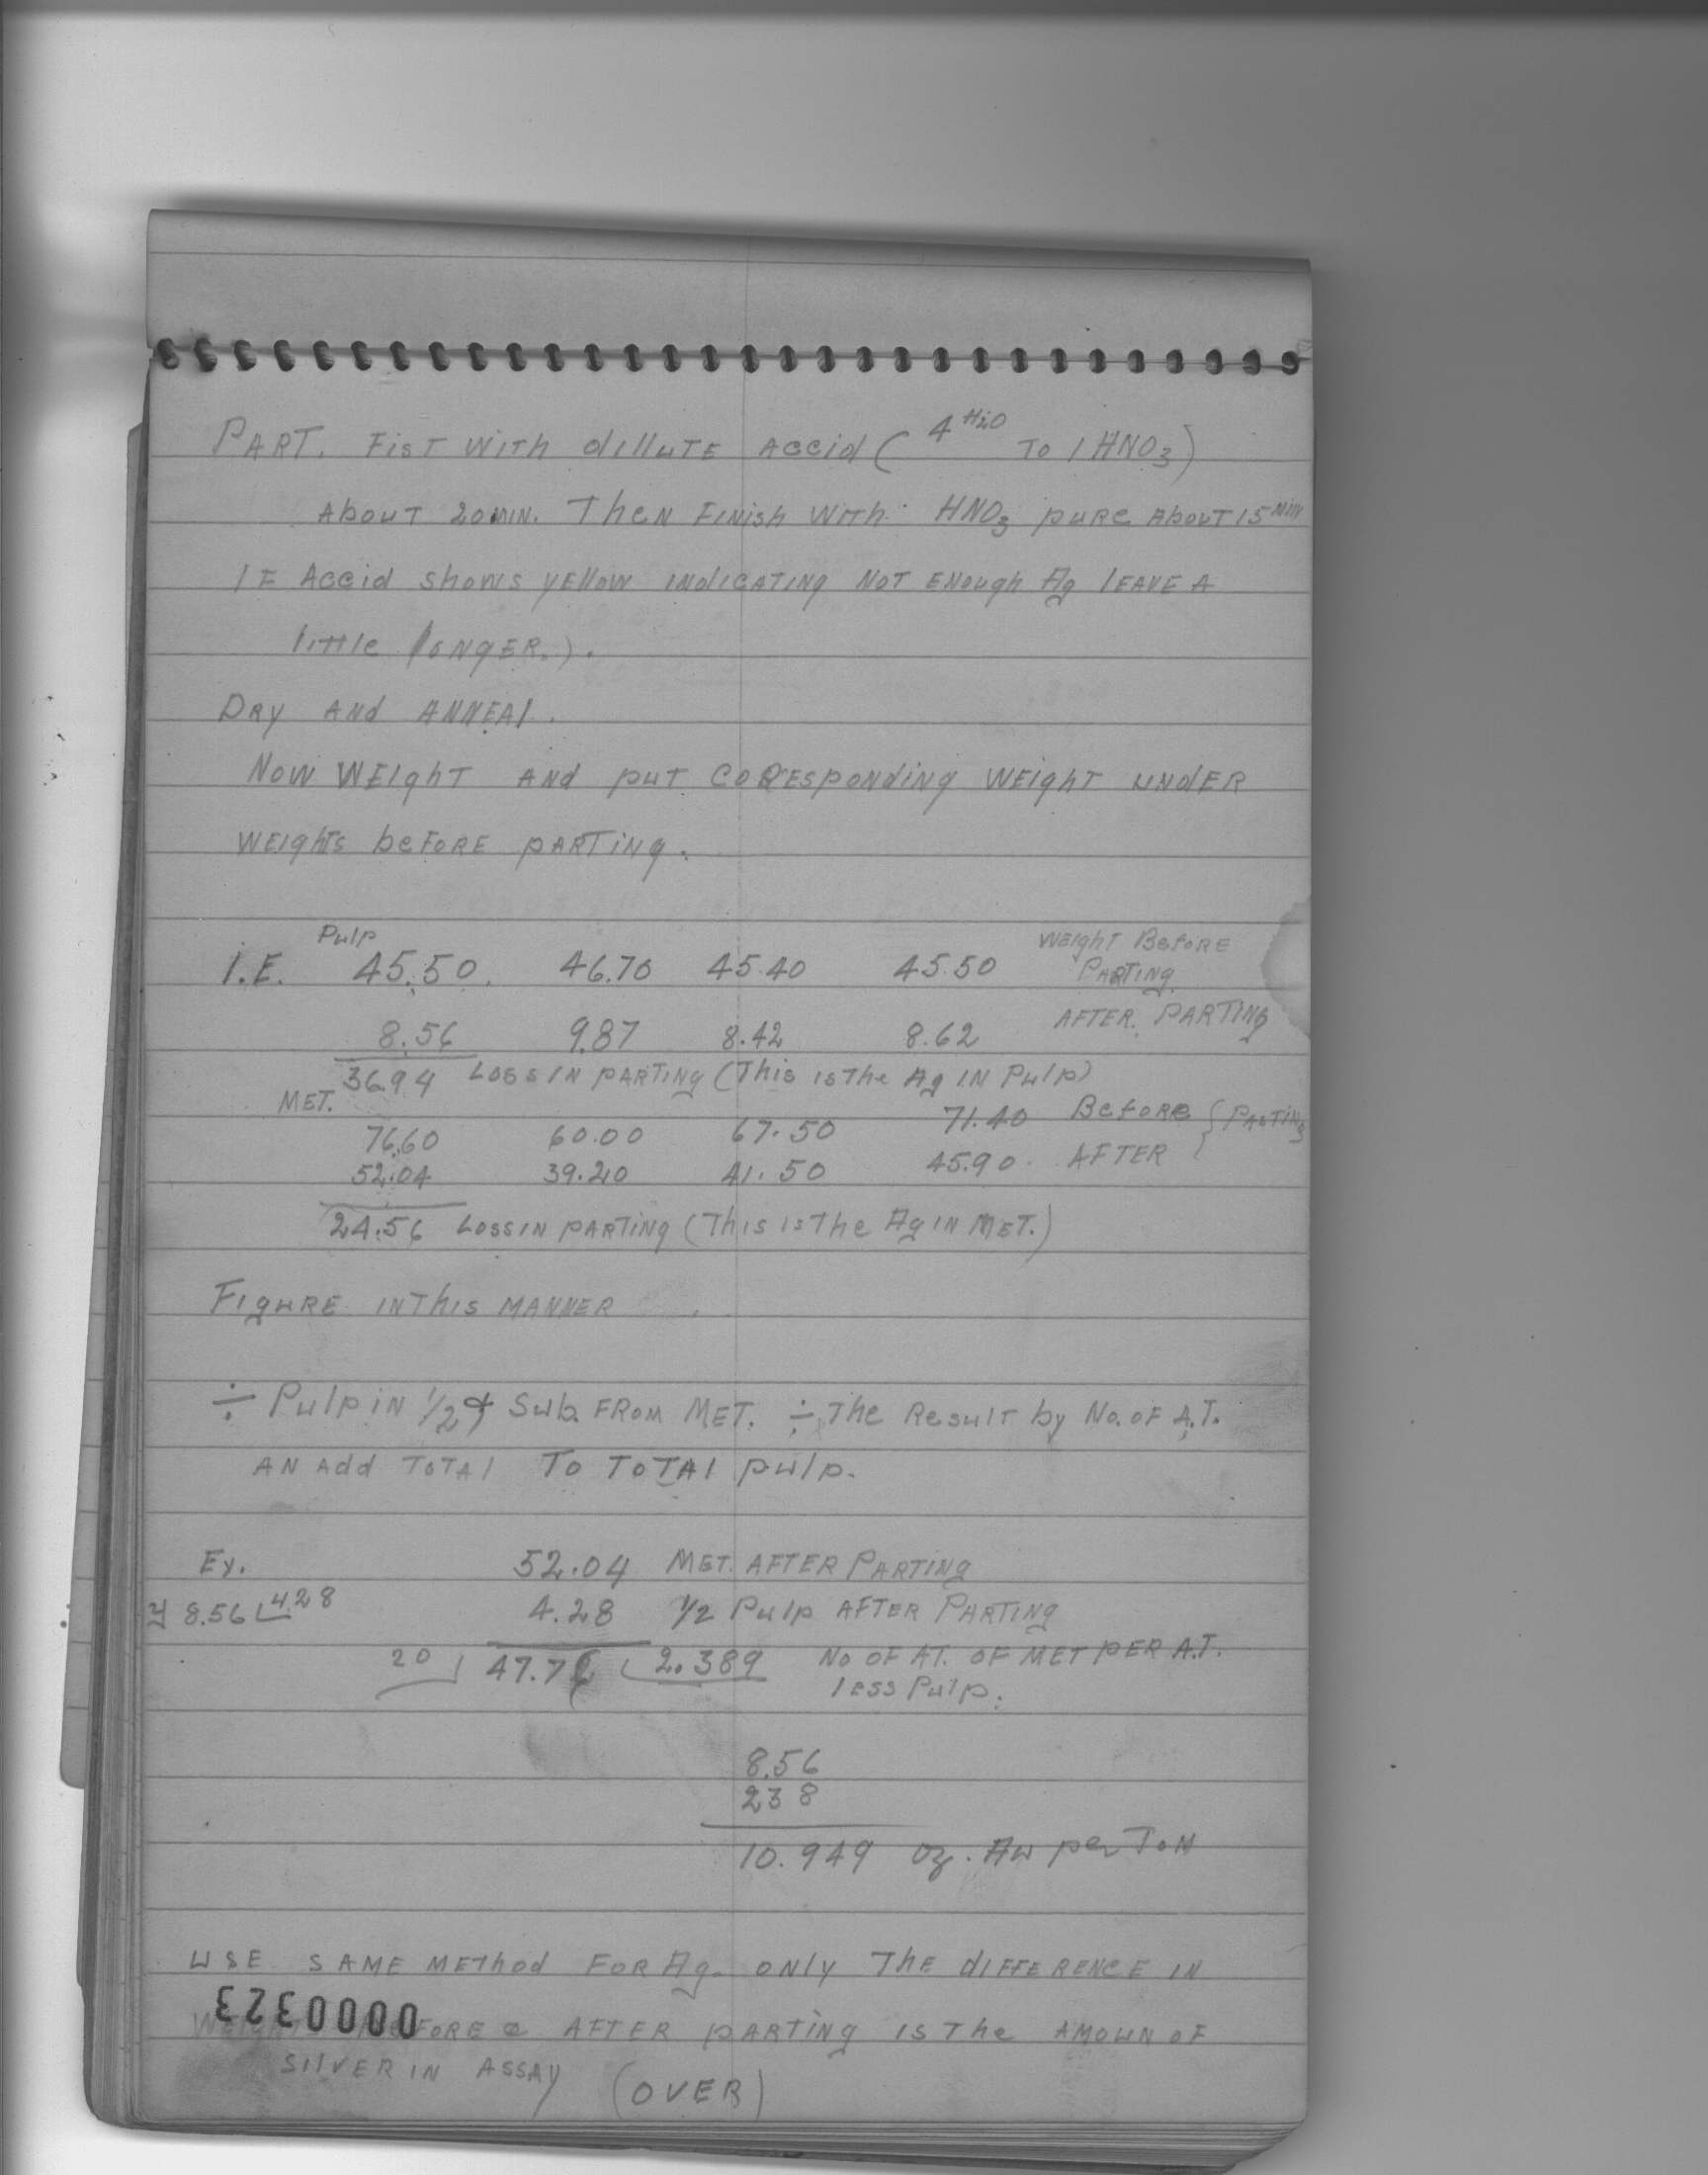 PART. FisT WiTh dilluTE Accid ( 4 H2O To 1 HNO3)
About 20 MIN. Then FINish With HNO3 pure About 15 MIN
IF Accid shows yEllow INdICATINg NOT ENough Ag lEAVE A
little loNgER.).
DRy ANd ANNEAl.
Now WEIghT ANd puT CoRESpoNding WEighT uNdER
WEIghTs beFORE pARTiNg.
Pulp
I.E. 45.50 46.70 45.40 45.50 WEIghT BeFORE PARTINg
8.56 9.87 8.42 8.62 AFTER PARTINg
36.94 Loss IN pARTiNg (This is The Ag IN Pulp)
MET.
76.60 60.00 67.50 71.40 BeFORe } PARTINg
52.04 39.20 41.50 45.90 AFTER
24.56 Loss IN pARTiNg (This is The Ag IN MET.)
FIguRE IN This MANNER
÷ Pulp iN 1/2 & Sub. FROM MET. ÷ The ResulT by No. OF A.T.
AN Add ToTAl To ToTAl pulp.
Ex. 52.04 MET. AFTER PARTINg
2 8.56 4.28 4.28 1/2 Pulp AFTER PARTINg
20 47.76 2.389 No OF AT. OF MET PER A.T.
less Pulp.
8.56
238
10.949 oz. Au per ToN
USE SAME METhod FOR Ag. ONly The dIFFERENCE IN
WEIGHT BEFORE & AFTER pARTiNg is The AMOuN oF
SIlVER IN ASSAy (OVER)
0000323